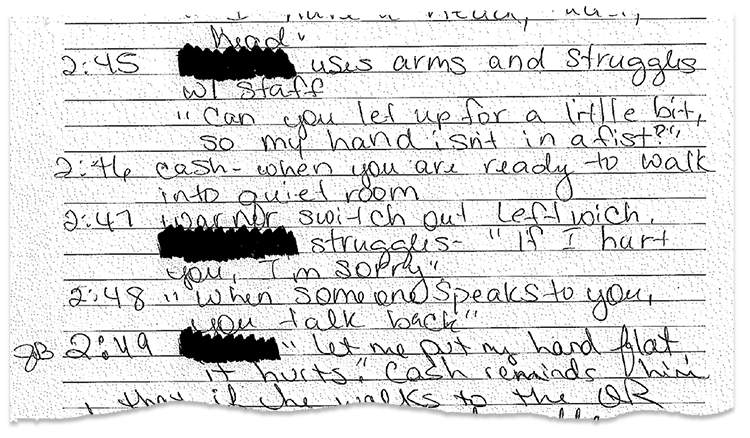 " I have a
head."
2:45 uses arms and struggles
w/ staff
"Can you let up for a little bit,
so my hand isnt in a fist?"
2:46 cash- when you are ready to walk
into quiet room
2:47 warner switch out Leftwich.
struggles- "If I hurt
you, I'm sorry"
2:48 "when someone speaks to you,
you talk back"
JB 2:49 "let me put my hand flat
it hurts." Cash reminds him
that if he walks to the QR